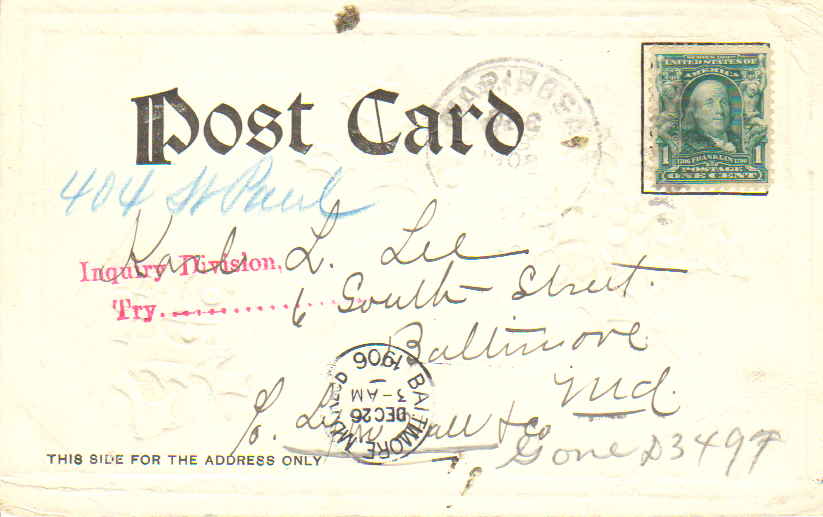 Post Card
MARIPOSA
SERIES 1902
UNITED STATES OF
AMERICA
1 1706 FRANKLIN 1790 1
POSTAGE
ONE CENT
404 St Paul
L. Lee
Inquiry Division,
Try...................
6 South Street.
Baltimore
Md.
BALTIMORE
DEC 26
3-AM
1906
c/o. & Co
Gone D3497
THIS SIDE FOR THE ADDRESS ONLY